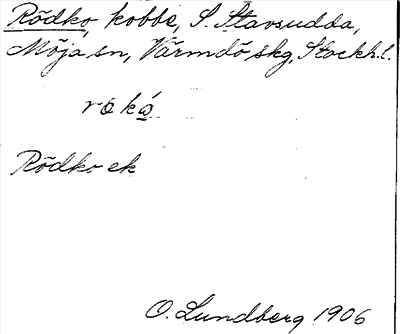 Rödko, kobbe, S. Stavsudda,
Möja sn, Värmdö skg, Stockh. l.
rokó
Rödko ek
O. Lundberg 1906